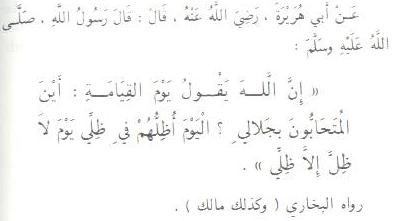 عَـنْ أَبِي هُرَيْرَةَ ، رَضِيَ اللَّهُ عَنْهُ ، قَالَ : قَالَ رَسُولُ اللَّهِ ، صَلَّـى
اللَّهُ عَلَيْهِ وَسَلَّمَ :
« إِنَّ اللَّـهَ يَقُـولُ يَوْمَ القِيَامَـةِ : أَيْنَ
الْمُتَحَابُّونَ بِجَلالِي ؟ الْيَوْمَ أُظِلُّهُمْ فِي ظِلِّي يَوْمَ لاَ
ظِلَّ إِلاَّ ظِلِّي » .
رواه البخاري ( وكذلك مالك ) .